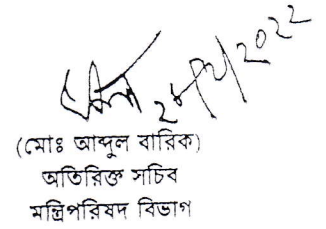 ২৮/২/2022
(মোঃ আব্দুল বারিক)
অতিরিক্ত সচিব
মন্ত্রিপরিষদ বিভাগ